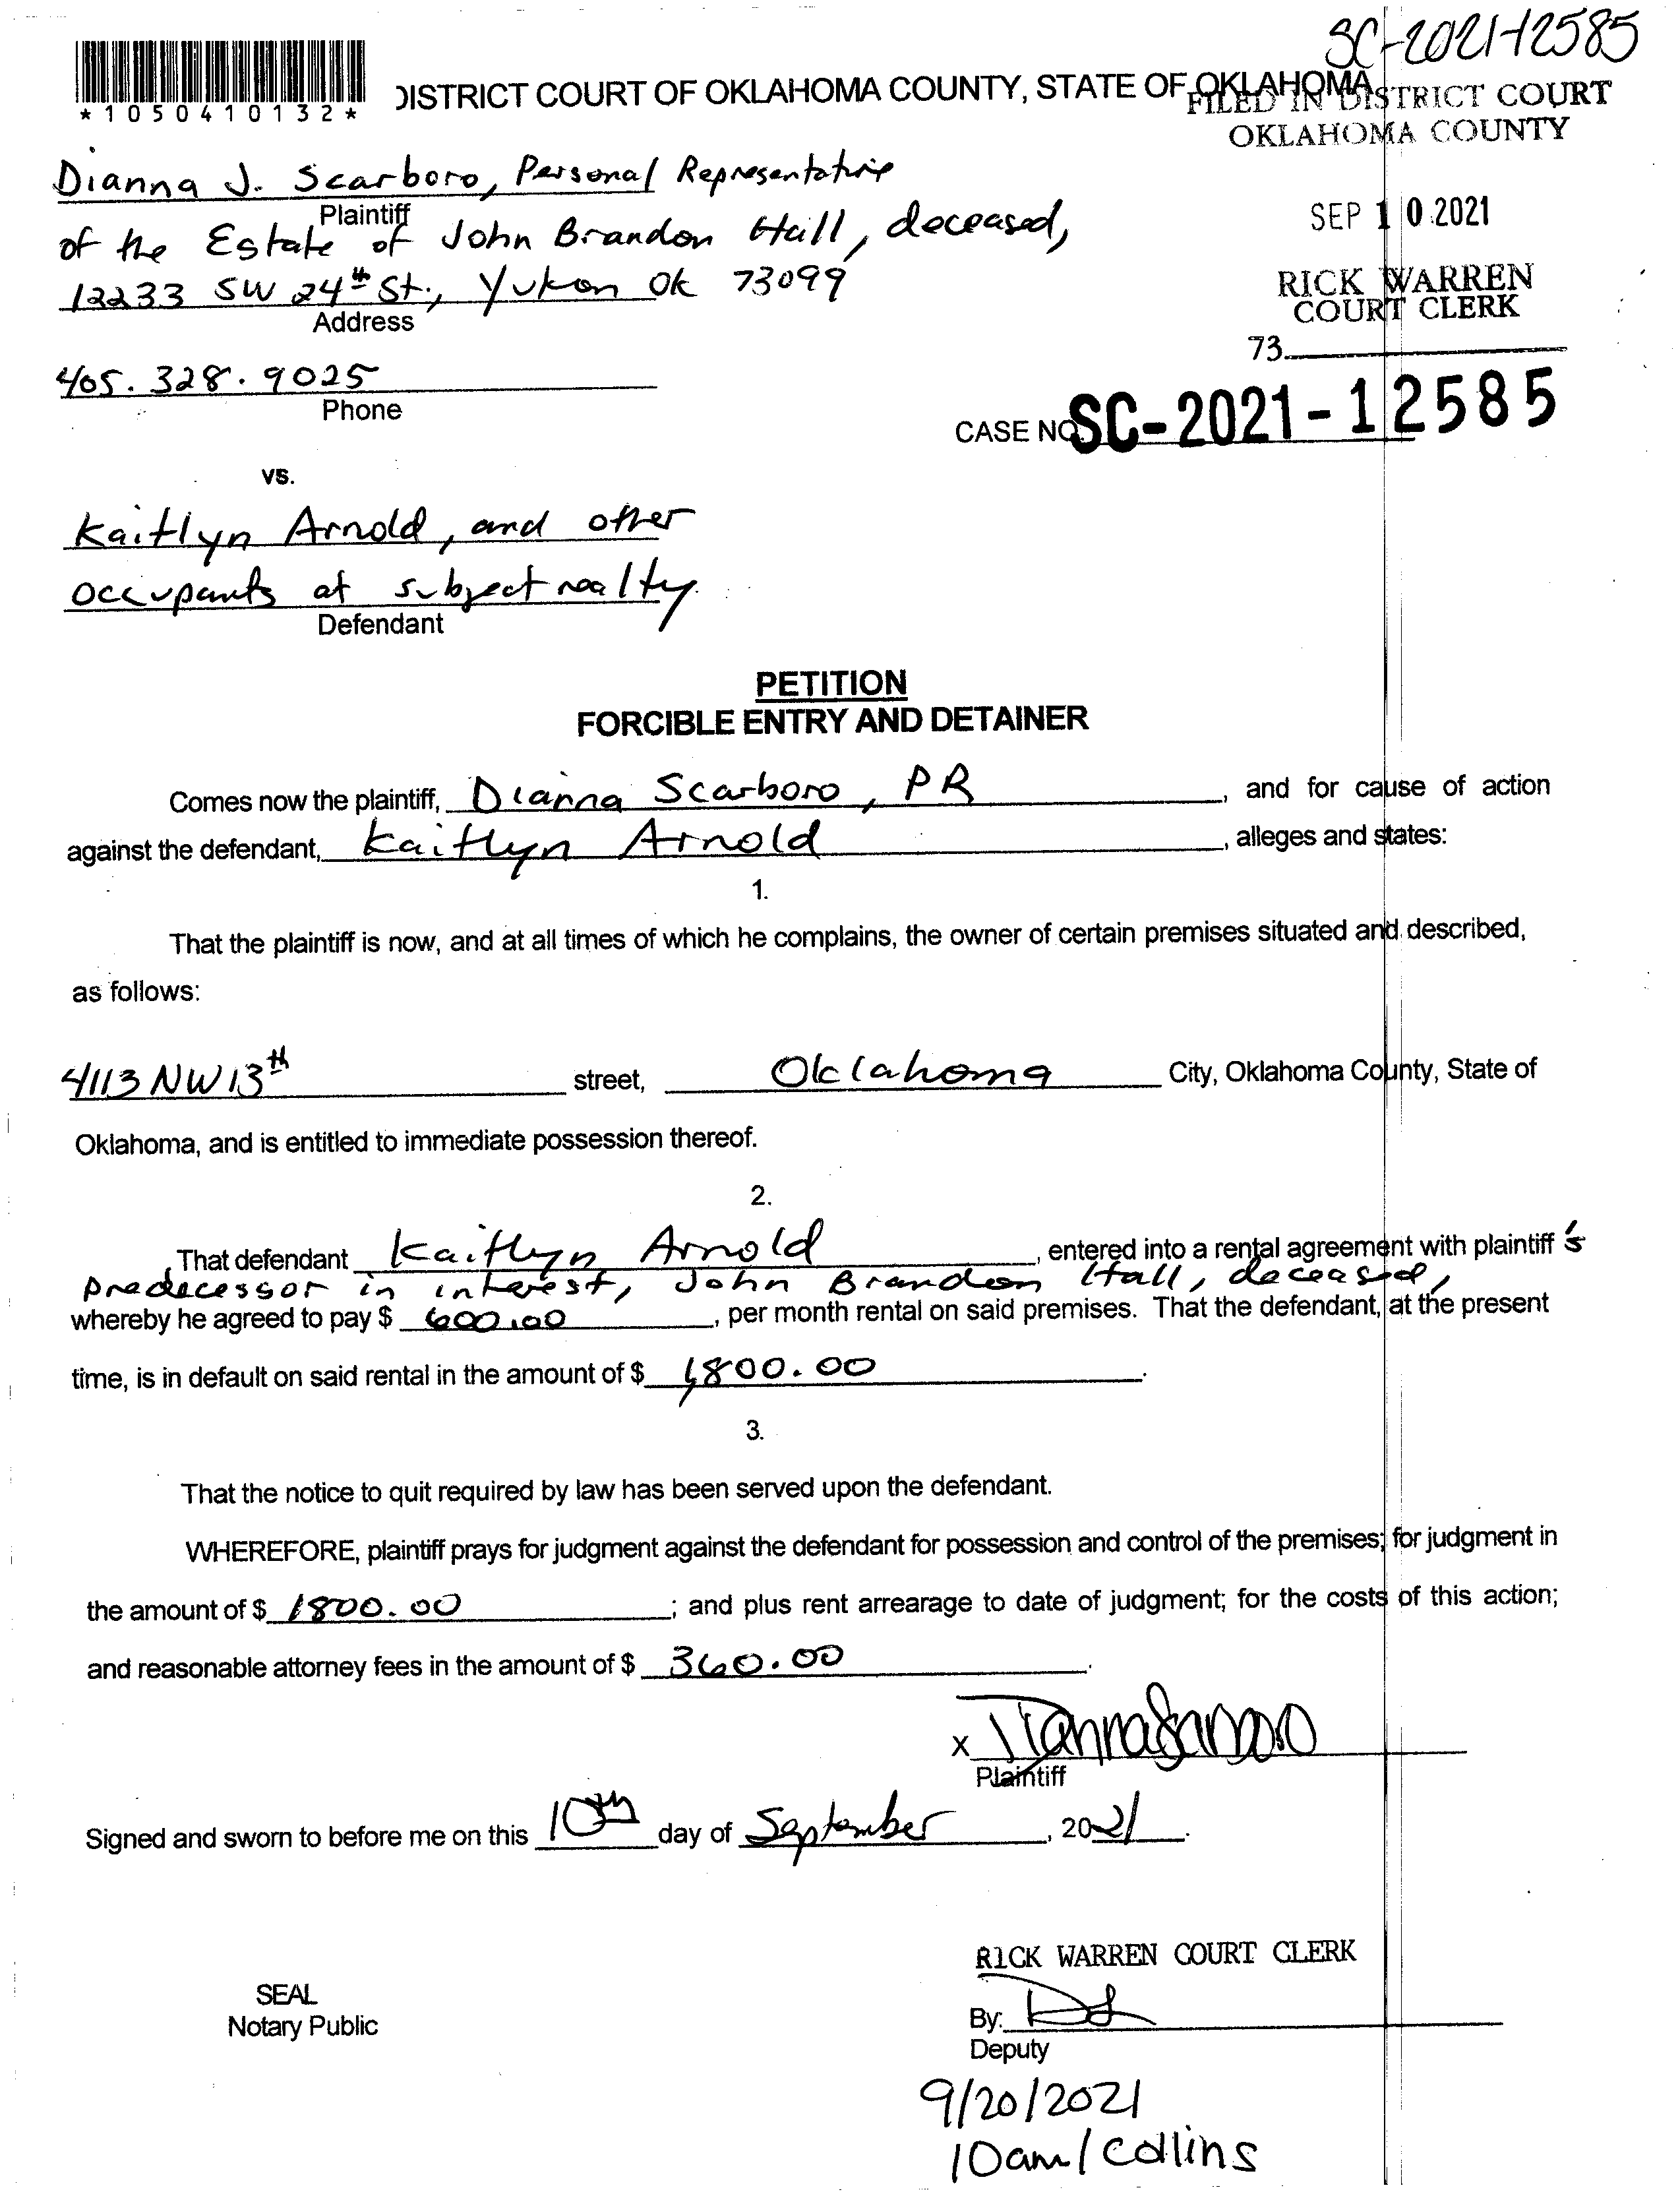 SC-2021-12585
*1050410132*
DISTRICT COURT OF OKLAHOMA COUNTY, STATE OF OKLAHOMA
FILED IN DISTRICT COURT
OKLAHOMA COUNTY
Dianna J. Scarboro, Personal Representative
Plaintiff
of the Estate of John Brandon Hall, deceased,
SEP 10 2021
12233 SW 24th St., Yukon Ok 73099
Address
RICK WARREN
COURT CLERK
73
405.328.9025
Phone
CASE NO. SC-2021-12585
vs.
Kaitlyn Arnold, and other
occupants at subject realty
Defendant
PETITION
FORCIBLE ENTRY AND DETAINER
Comes now the plaintiff, Dianna Scarboro, PR, and for cause of action
against the defendant, Kaitlyn Arnold, alleges and states:
1.
That the plaintiff is now, and at all times of which he complains, the owner of certain premises situated and described,
as follows:
4113 NW 13th street, Oklahoma City, Oklahoma County, State of
Oklahoma, and is entitled to immediate possession thereof.
2.
That defendant Kaitlyn Arnold, entered into a rental agreement with plaintiff's
predecessor in interest, John Brandon Hall, deceased,
whereby he agreed to pay $ 600.00, per month rental on said premises. That the defendant, at the present
time, is in default on said rental in the amount of $ 1,800.00.
3.
That the notice to quit required by law has been served upon the defendant.
WHEREFORE, plaintiff prays for judgment against the defendant for possession and control of the premises; for judgment in
the amount of $ 1800.00; and plus rent arrearage to date of judgment; for the costs of this action;
and reasonable attorney fees in the amount of $ 360.00.
x Dianna Scarboro
Plaintiff
Signed and sworn to before me on this 10th day of September, 2021.
RICK WARREN COURT CLERK
SEAL
Notary Public
By:
Deputy
9/20/2021
10am/Collins